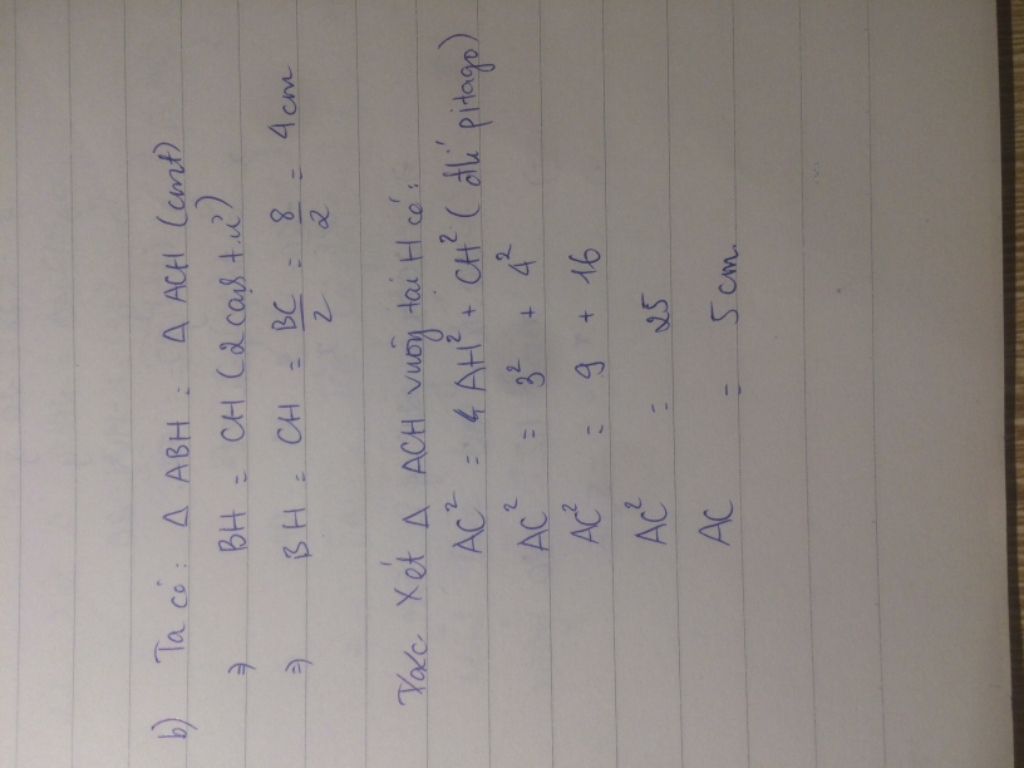 b) Ta có: Δ ABH = Δ ACH (cmt)
⇒ BH = CH (2 cạh t.ứ)
⇒ BH = CH = BC/2 = 8/2 = 4cm
Xét Δ ACH vuông tại H có:
AC² = AH² + CH² (đlí pitago)
AC² = 3² + 4²
AC² = 9 + 16
AC² = 25
AC = 5 cm